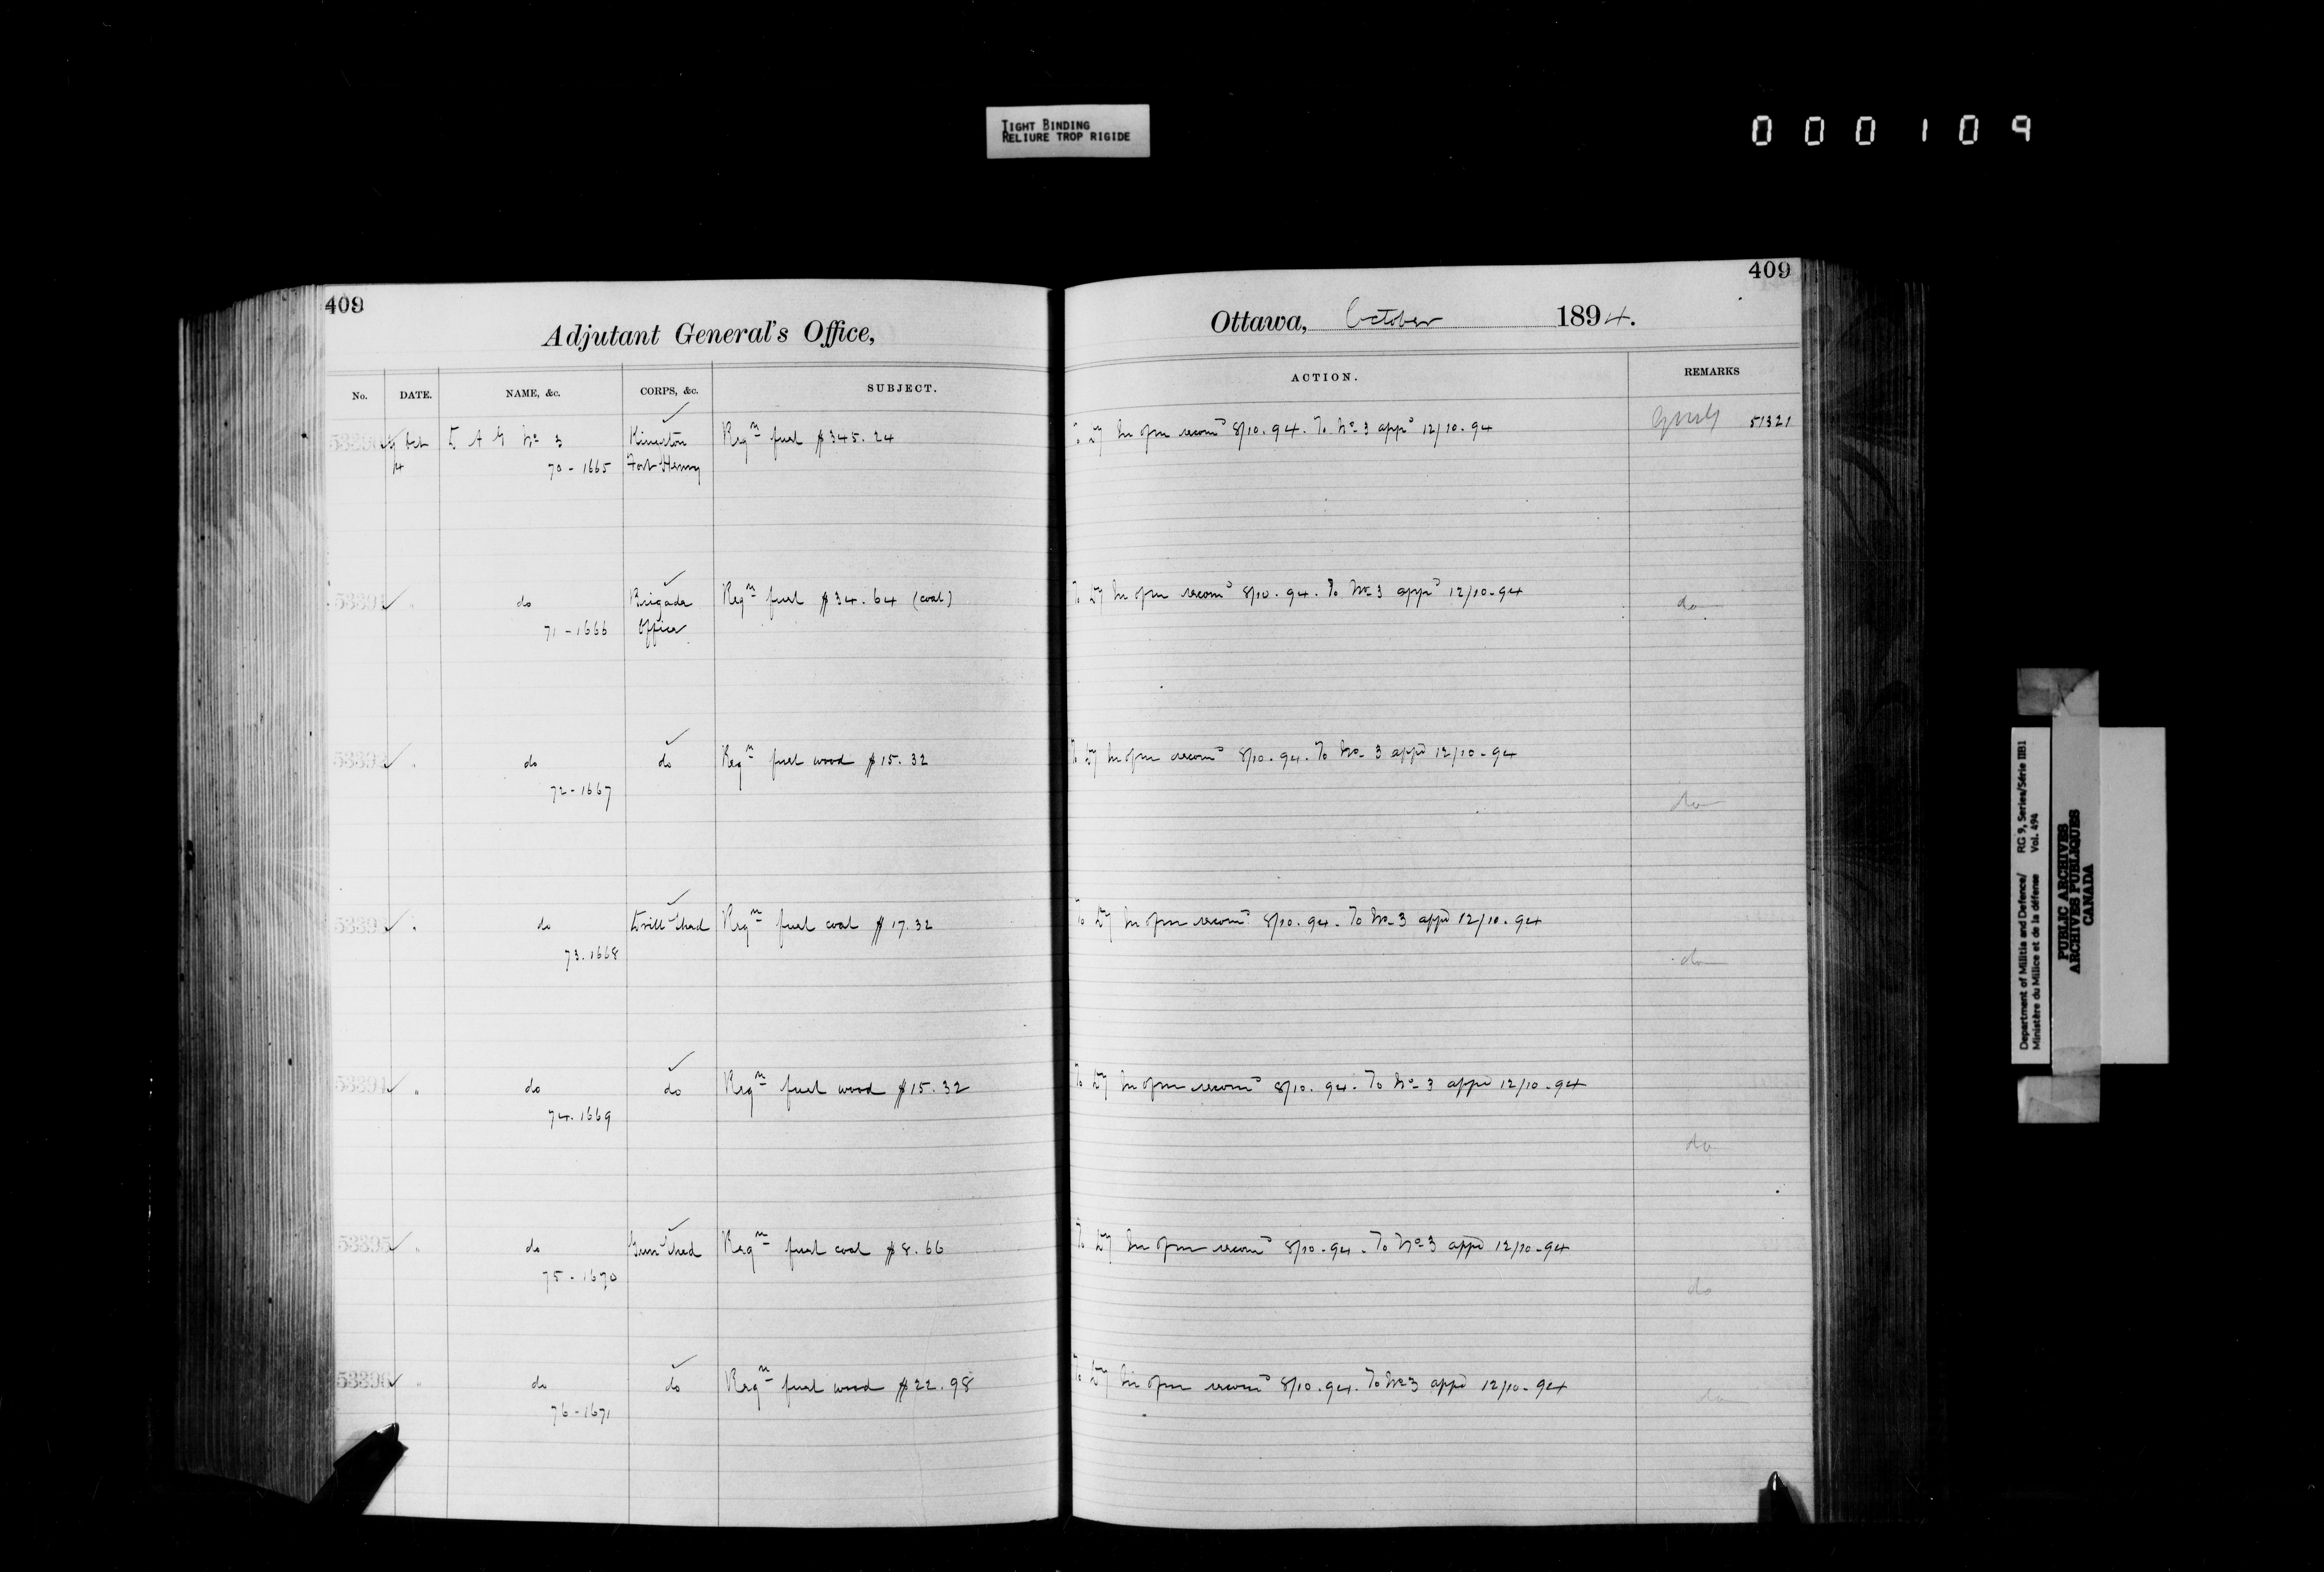 TIGHT BINDING
RELIURE TROP RIGIDE
000109
409
Adjutant General's Office,
No. DATE. NAME, &c. CORPS, &c. SUBJECT.
53390 Oct D A G No 3 Kingston Reqn fuel $345.24
70-1665 Fort Henry
53391 " do Brigade Reqn fuel $34.64 (coal)
71-1666 Office
53392 " do do Reqn fuel wood $15.32
72-1667
53393 " do Drill Shed Reqn fuel coal $17.32
73.1668
53394 " do do Reqn fuel wood $15.32
74.1669
53395 " do Gun Shed Reqn fuel coal $8.66
75-1670
53396 " do do Reqn fuel wood $22.98
76-1671
409
Ottawa, October 1894.
ACTION. REMARKS
recomd 8/10.94. To No 3 appd 12/10-94 51321
To recomd 8/10.94. To No 3 appd 12/10-94 do
To recomd 8/10.94. To No 3 appd 12/10-94
do
To recomd 8/10.94. To No 3 appd 12/10.94
do
To recomd 8/10.94. To No 3 appd 12/10-94
do
To recomd 8/10-94. To No 3 appd 12/10-94
do
To recomd 8/10.94. To No 3 appd 12/10-94
do
Department of Militia and Defence/ RG 9, Series/Série IIB1
Ministère du Milice et de la défense Vol. 494
PUBLIC ARCHIVES
ARCHIVES PUBLIQUES
CANADA